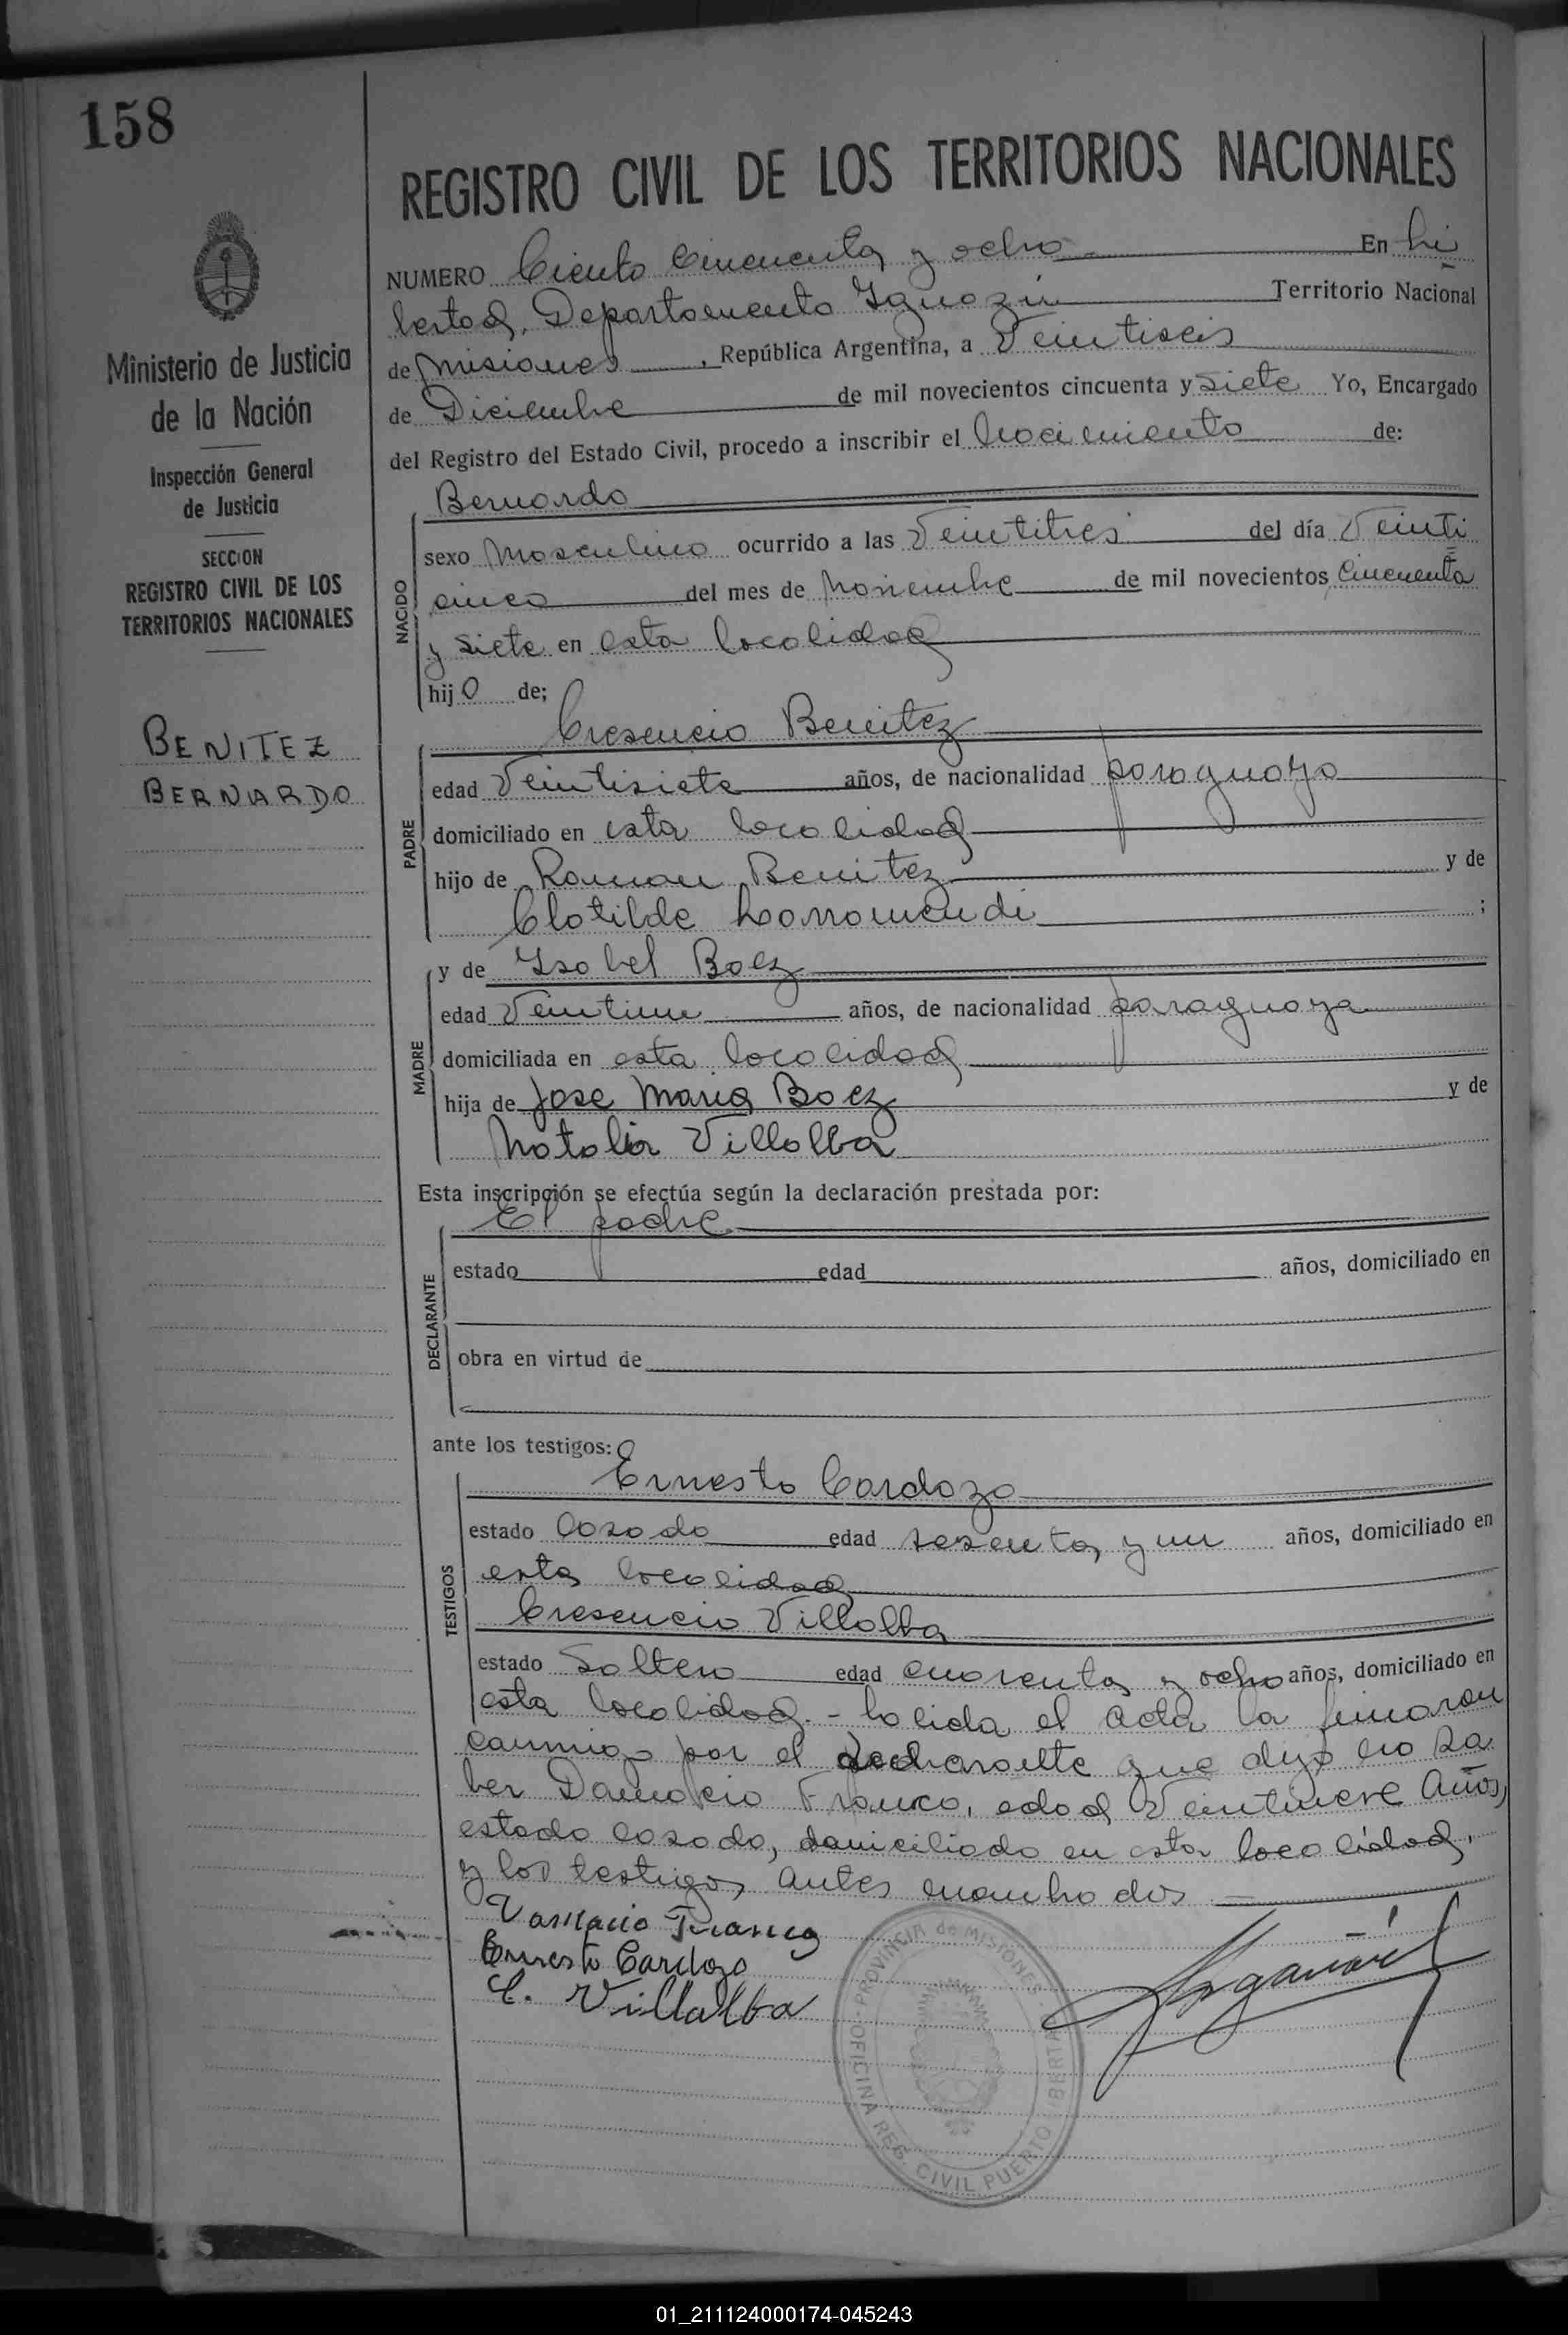 158
REGISTRO CIVIL DE LOS TERRITORIOS NACIONALES
Ministerio de Justicia
de la Nación
Inspección General
de Justicia
SECCION
REGISTRO CIVIL DE LOS
TERRITORIOS NACIONALES
BENITEZ
BERNARDO
NUMERO Ciento Cincuenta y ocho En Li
bertad, Departamento Iguazú Territorio Nacional
de Misiones, República Argentina, a Veintiseis
de Diciembre de mil novecientos cincuenta y siete Yo, Encargado
del Registro del Estado Civil, procedo a inscribir el Nacimiento de:
NACIDO
Bernardo
sexo Masculino ocurrido a las Veintitres del día Veinti
cinco del mes de Noviembre de mil novecientos Cincuenta
y siete en esta localidad
hijo de;
PADRE
Cresencio Benitez
edad Veintisiete años, de nacionalidad paraguaya
domiciliado en esta localidad
hijo de Roman Benitez y de
Clotilde Larramendi ;
MADRE
y de Isabel Baez
edad Veintiun años, de nacionalidad paraguaya
domiciliada en esta localidad
hija de Jose Maria Baez y de
Natalia Villalba
Esta inscripción se efectúa según la declaración prestada por:
DECLARANTE
El padre
estado edad años, domiciliado en
obra en virtud de
ante los testigos:
TESTIGOS
Ernesto Cardozo
estado Casado edad sesenta y un años, domiciliado en
esta localidad
Cresencio Villalba
estado Soltero edad cuarenta y ocho años, domiciliado en
esta localidad. - Leida el Acta la firmaron
conmigo por el declarante que dijo no sa
ber Damacio Franco, edad Veintinueve Años,
estado casado, domiciliado en esta localidad,
y los testigos antes nombrados
Damacio Franco
Ernesto Cardozo
C. Villalba
PROVINCIA de MISIONES
OFICINA REG. CIVIL PUERTO LIBERTAD
01_211124000174-045243